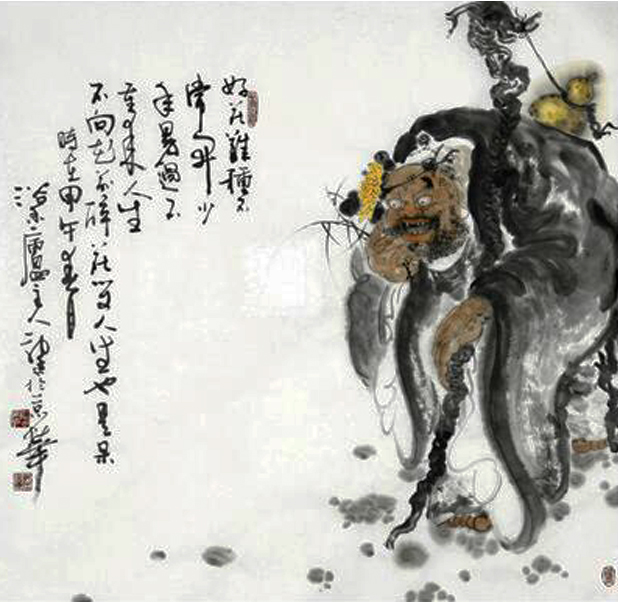 好花難種不
常開少
年易過不
重來人生
不向花前醉花笑人生也是呆
時在甲午春月
廬主人於京華